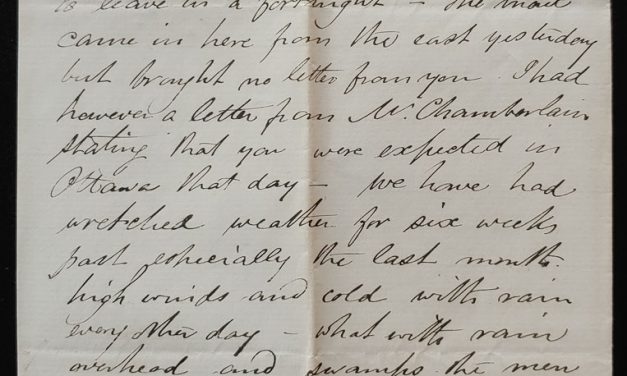 to leave in a fortnight – The mail
came in here from the east yesterday
but brought no letter from you. I had
however a letter from Mr. Chamberlain
stating that you were expected in
Ottawa that day – We have had
wretched weather for six weeks
past especially the last month.
high winds and cold with rain
every other day – what with rain
overhead and swamps the men